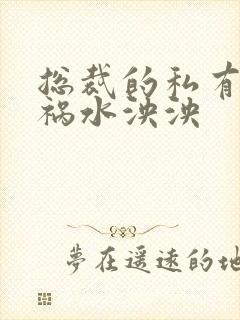 总裁的私有
祸水泱泱
梦在遥远的地